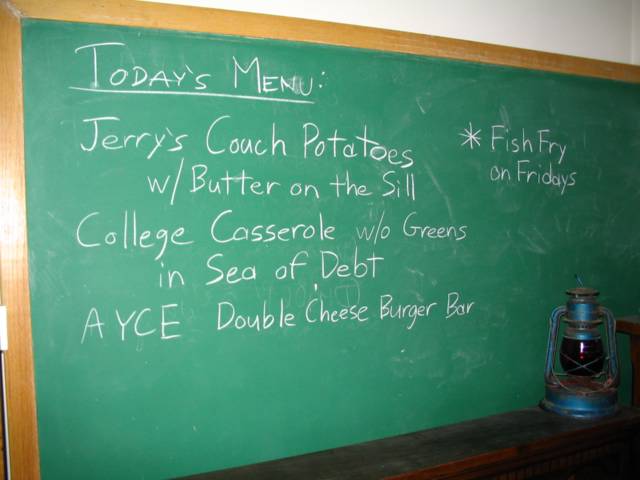 TODAY'S MENU:
Jerry's Couch Potatoes
w/ Butter on the Sill
College Casserole w/o Greens
in Sea of Debt
AYCE Double Cheese Burger Bar
* Fish Fry
on Fridays